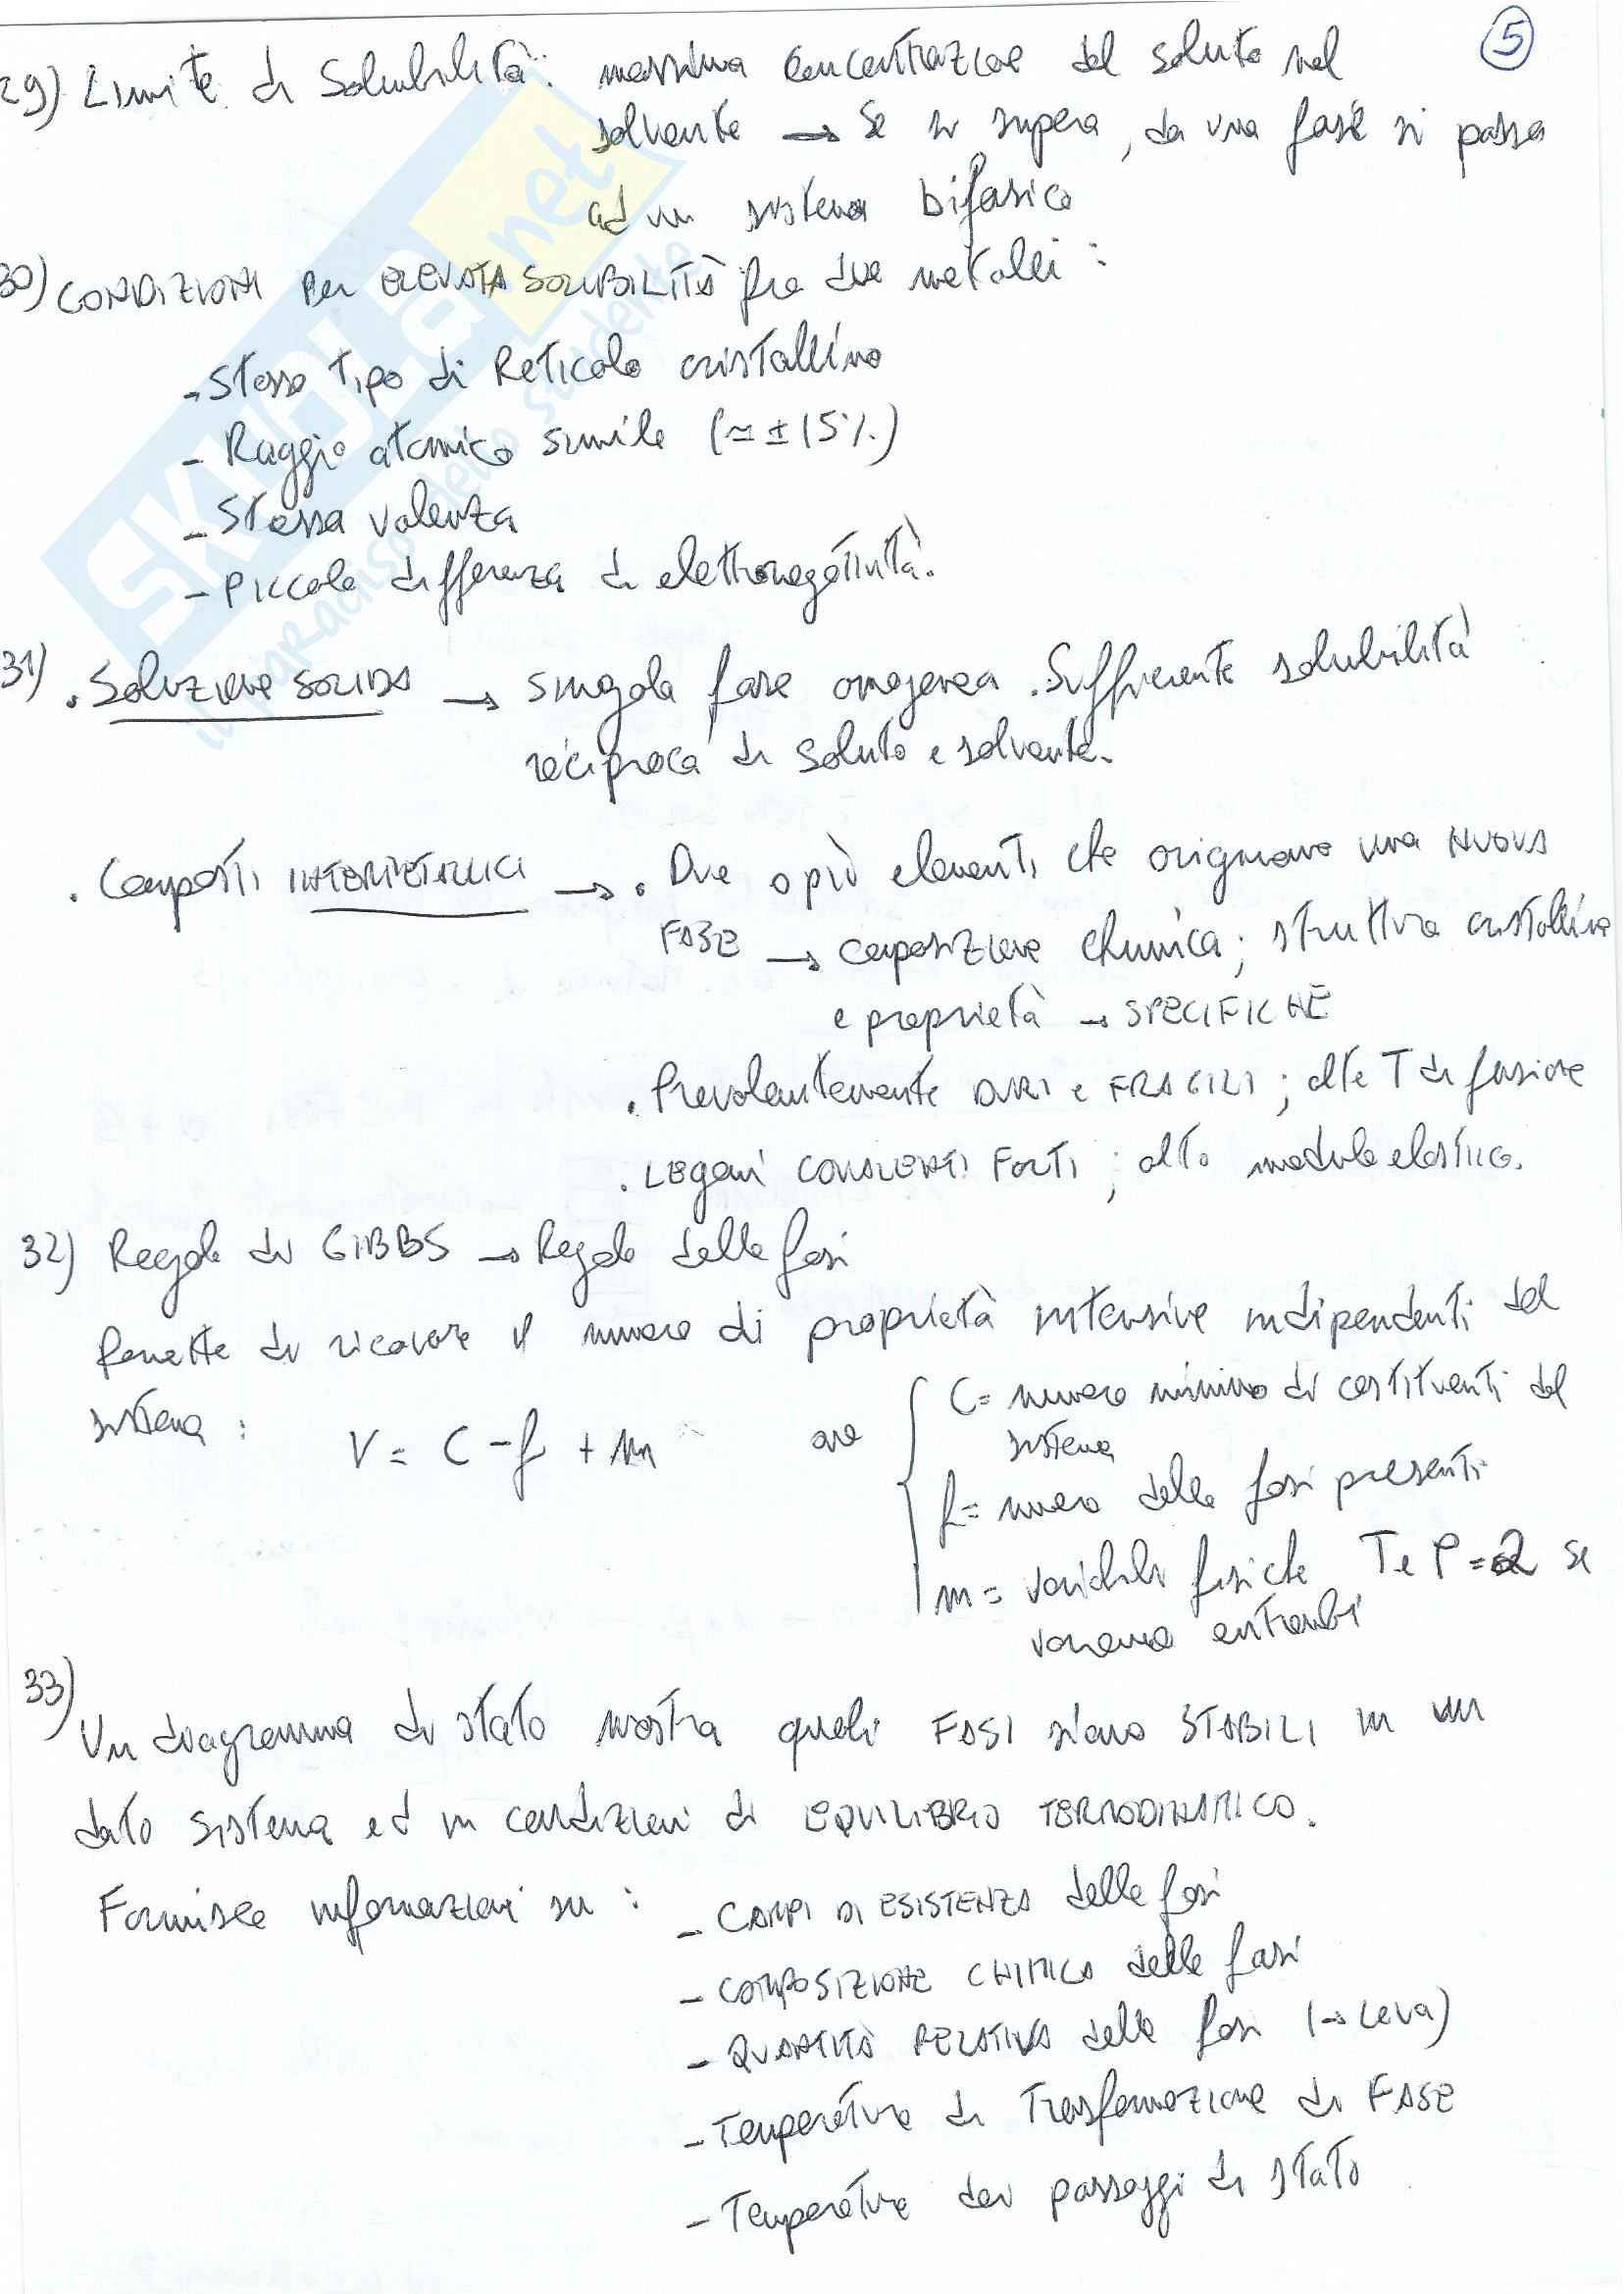 5
29) Limite di Solubilità: massima concentrazione del soluto nel
solvente → Se si supera, da una fase si passa
ad un sistema bifasico
30) CONDIZIONI Per ELEVATA SOLUBILITÀ fra due metalli:
- Stesso tipo di Reticolo cristallino
- Raggio atomico simile (≃ ± 15%)
- Stessa valenza
- Piccola differenza di elettronegatività.
31) . Soluzione SOLIDA → singola fase omogenea. Sufficiente solubilità
reciproca di Soluto e solvente.
. Composti INTERMETALLICI → . Due o più elementi che originano una NUOVA
FASE → composizione chimica; struttura cristallina
e proprietà → SPECIFICHE
. Prevalentemente DURI e FRAGILI; alte T di fusione
. LEgami COVALENTI FORTI; alto modulo elastico.
32) Regola di GIBBS → Regola delle fasi
Permette di ricavare il numero di proprietà intensive indipendenti del
sistema: V = C - f + m ove
C = numero minimo di costituenti del
sistema
f = numero delle fasi presenti
m = variabili fisiche T e P = 2 se
variano entrambi
33)
Un diagramma di stato mostra quali FASI siano STABILI in un
dato sistema ed in condizioni di EQUILIBRIO TERMODINAMICO.
Fornisce informazioni su: - CAMPI DI ESISTENZA delle fasi
- COMPOSIZIONE CHIMICA delle fasi
- QUANTITÀ RELATIVA delle fasi (→ Leva)
- Temperature di Trasformazione di FASE
- Temperature dei passaggi di stato
SKUOLA.net
il paradiso dello studente